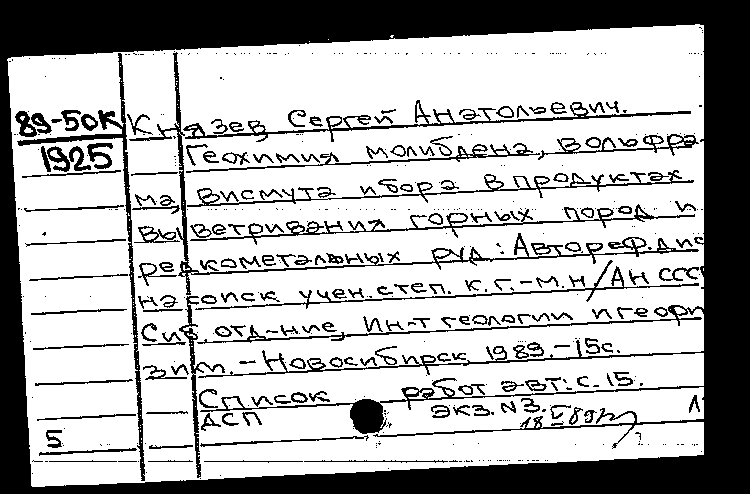 89-50К
1925
Князев, Сергей Анатольевич.
Геохимия молибдена, вольфра-
ма, висмута и бора в продуктах
выветривания горных пород и
редкометальных руд: Автореф. дис
на соиск учен. степ. к. г.-м. н/АН СССР
Сиб. отд-ние, Ин-т геологии и геофи
зики. - Новосибирск, 1989. - 15с.
Список работ авт.: с. 15.
ДСП экз. N3.
18 V 89
5